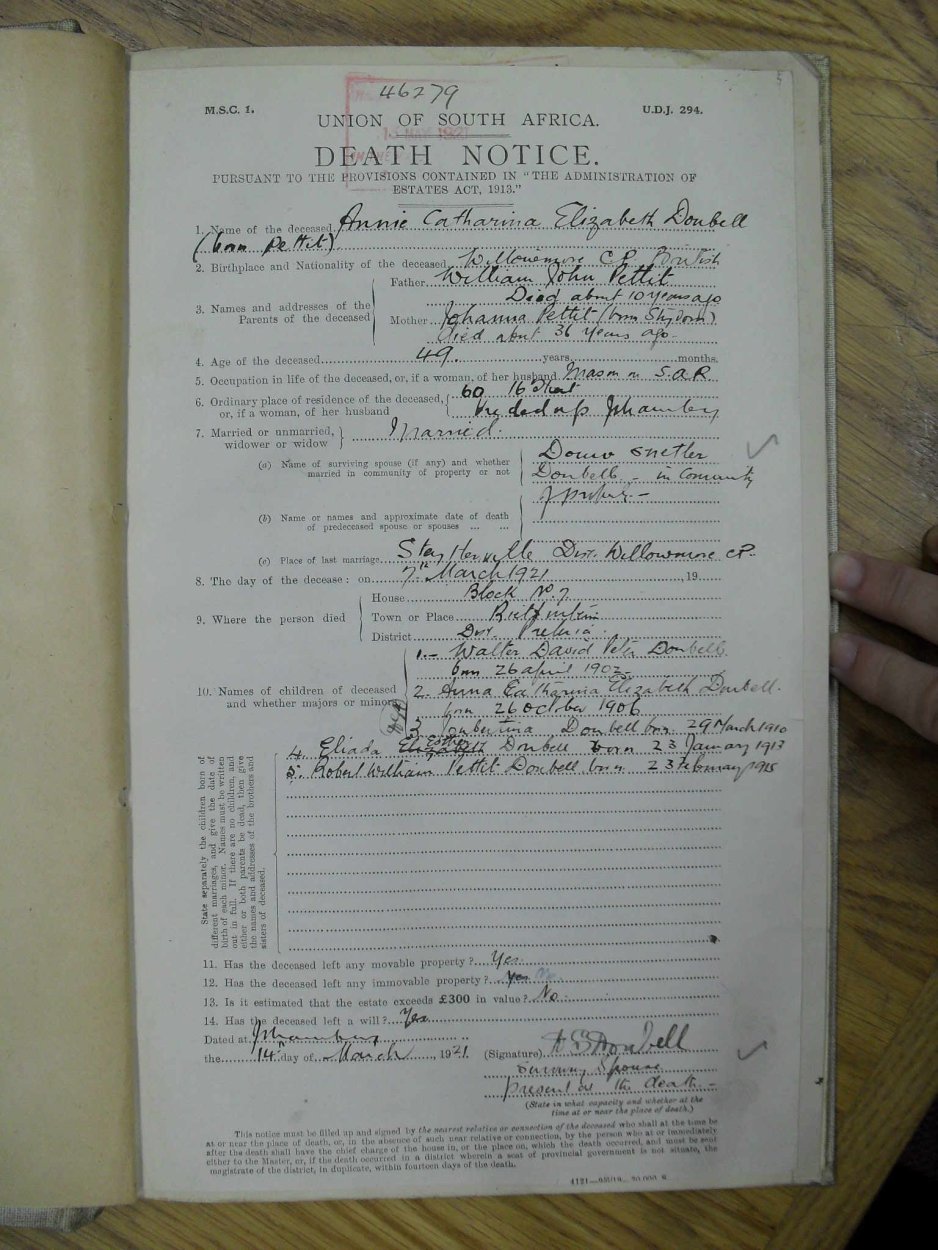 46279
M.S.C. 1.
U.D.J. 294.
UNION OF SOUTH AFRICA.
13 MAY 1921
DEATH NOTICE.
PURSUANT TO THE PROVISIONS CONTAINED IN "THE ADMINISTRATION OF
ESTATES ACT, 1913."
1. Name of the deceased Annie Catharina Elizabeth Doubell
(born Pettit)
2. Birthplace and Nationality of the deceased Willowmore C.P. British
3. Names and addresses of the Parents of the deceased
Father William John Pettit
Died about 10 years ago
Mother Johanna Pettit (born Strydom)
died about 36 years ago
4. Age of the deceased 49 years months.
5. Occupation in life of the deceased, or, if a woman, of her husband Mason in S.A.R
6. Ordinary place of residence of the deceased, or, if a woman, of her husband
60 16 Street
Vrededorp Jhannbg
7. Married or unmarried, widower or widow } Married.
(a) Name of surviving spouse (if any) and whether married in community of property or not
Doubell - in Community
of property -
(b) Name or names and approximate date of death
of predeceased spouse or spouses ... ...
(c) Place of last marriage Steytlerville Dist. Willowmore C.P.
8. The day of the decease: on 7th March 1921, 19
9. Where the person died
House Block No. 7
Town or Place Rietfontein
District Dist. Pretoria
10. Names of children of deceased and whether majors or minors
1. - Walter David Peter Doubell
born 26 april 1902
2. Anna Catharina Elizabeth Doubell.
born 26 October 1906
3. Joubertina Doubell born 29 March 1910
4. Eliada Elizabeth Esther Doubell born 23 January 1913
5. Robert William Pettit Doubell born 23 February 1915
State separately the children born of
different marriages, and give the date of
birth of each minor. Names must be written
out in full. If there are no children, and
either or both parents be dead, then give
the names and addresses of the brothers and
sisters of deceased.
11. Has the deceased left any movable property? Yes
12. Has the deceased left any immovable property? Yes No
13. Is it estimated that the estate exceeds £300 in value? No
14. Has the deceased left a will? Yes
Dated at
the 14 day of March, 1921.
(Signature) Doubell
Spouse
present at the death -
(State in what capacity and whether at the
time at or near the place of death.)
This notice must be filled up and signed by the nearest relative or connection of the deceased who shall at the time be
at or near the place of death, or, in the absence of such near relative or connection, by the person who at or immediately
after the death shall have the chief charge of the house in, or the place on, which the death occurred, and must be sent
either to the Master, or, if the death occurred in a district wherein a seat of provincial government is not situate, the
magistrate of the district, in duplicate, within fourteen days of the death.